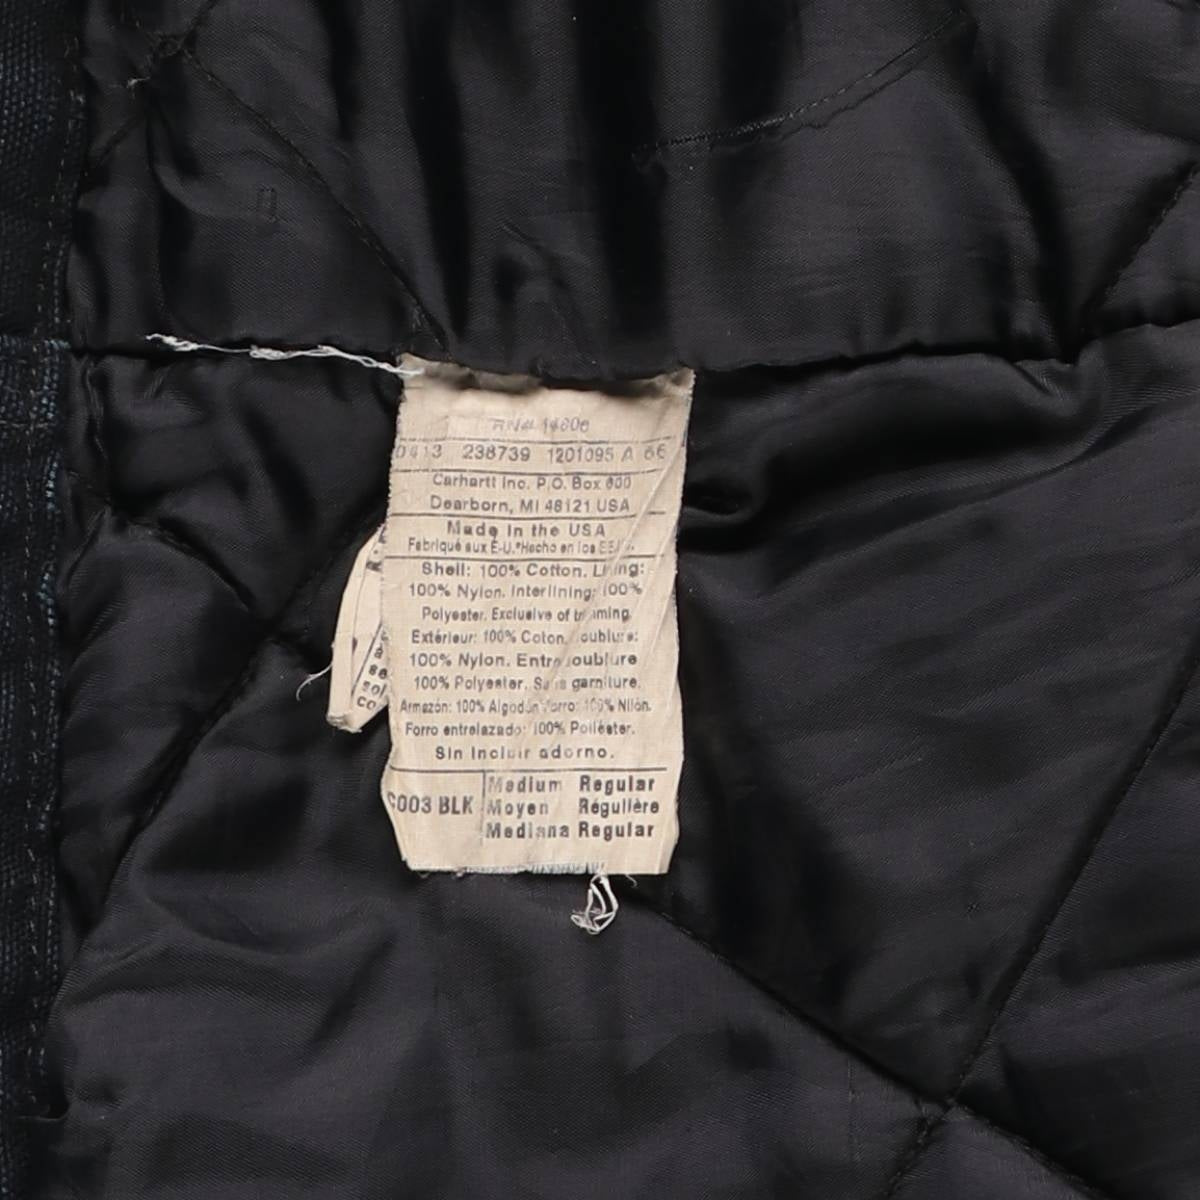 RN# 14806
0413 238739 1201095 A 66
Carhartt Inc. P.O. Box 600
Dearborn, MI 48121 USA
Made in the USA
Fabriqué aux É-U.*Hecho en los
Shell: 100% Cotton. Lining:
100% Nylon. Interlining: 100%
Polyester. Exclusive of trimming.
Extérieur: 100% Coton. Doublure:
100% Nylon. Entredoublure
100% Polyester. Sans garniture.
Armazón: 100% Algodón Forro: 100% Nilón.
Forro entrelazado: 100% Poliéster.
Sin Incluir adorno.
C003 BLK
Medium Regular
Moyen Régulière
Mediana Regular